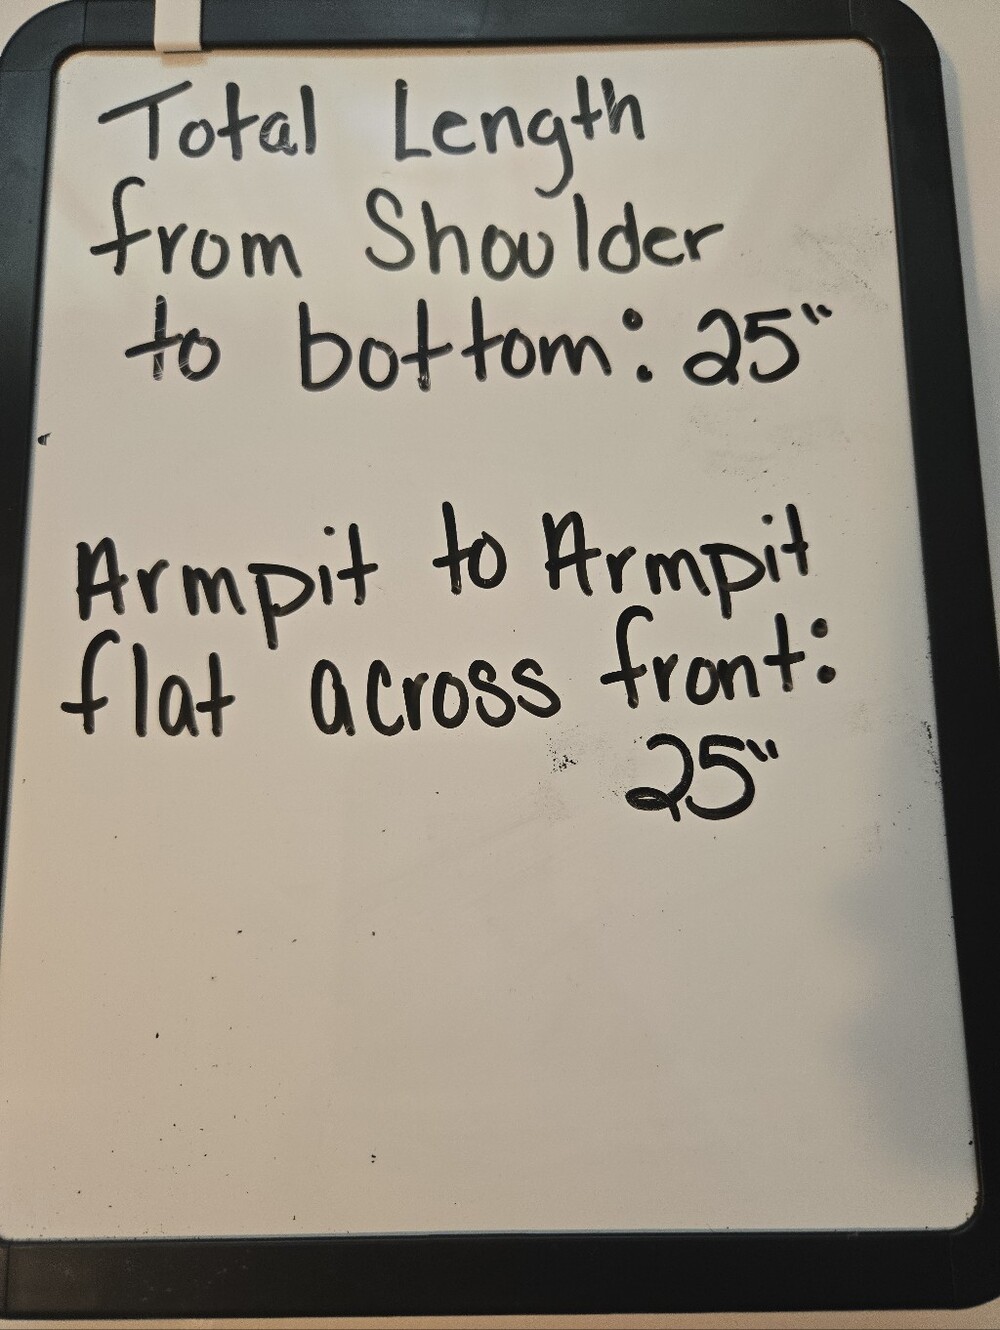 Total Length
from Shoulder
to bottom: 25"
Armpit to Armpit
flat across front:
25"